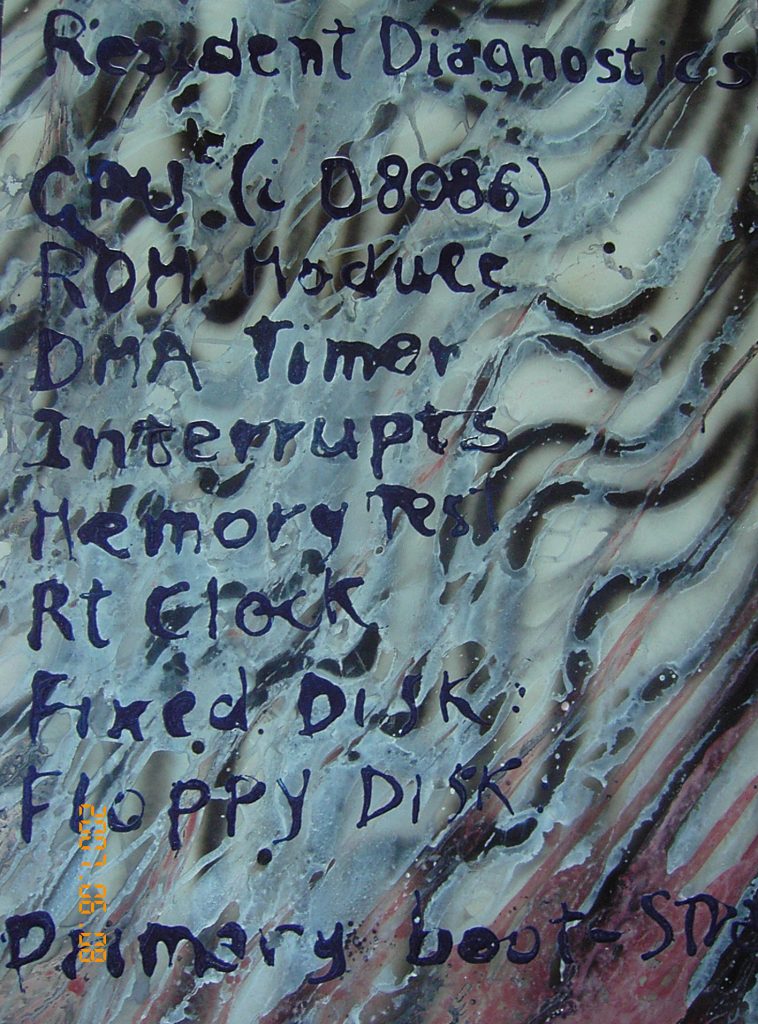 Resident Diagnostics
CPU (i D8086)
ROM Module
DMA Timer
Interrupts
Memory Test
Rt Clock
Fixed Disk:
Floppy Disk
Primary boot-Str
2007.06.08